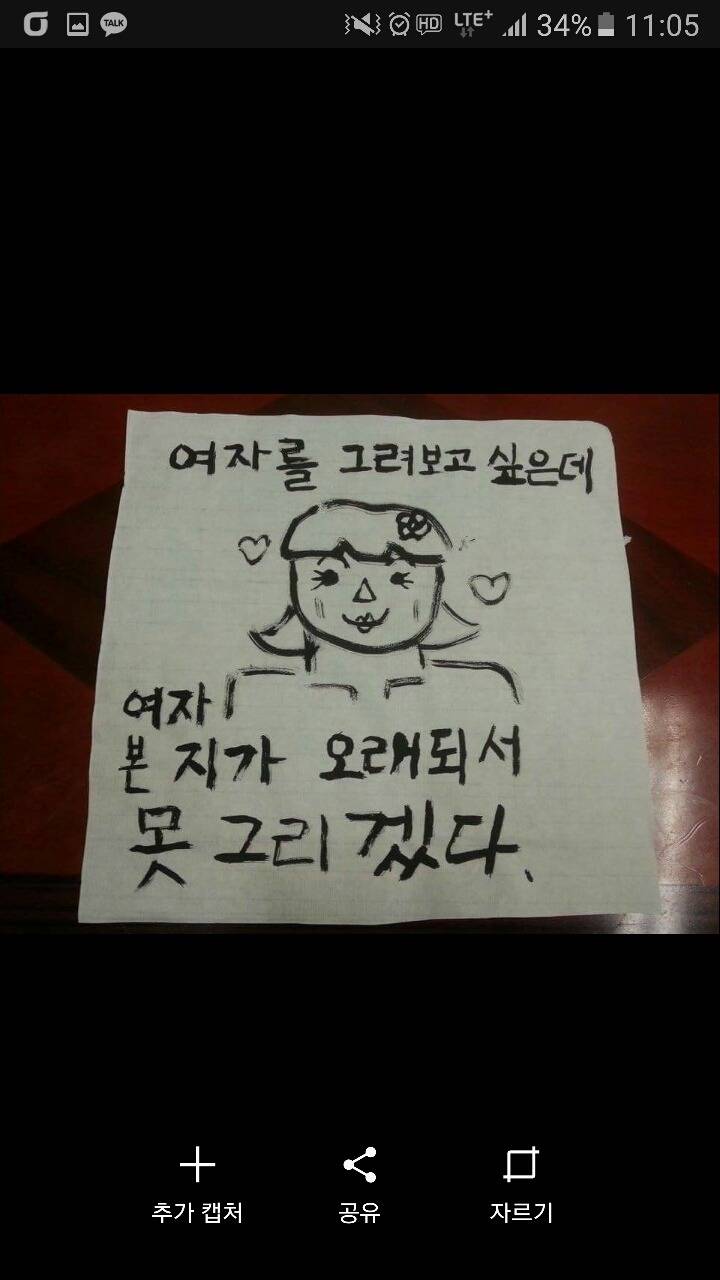 TALK HD LTE+ 34% 11:05
여자를 그려보고 싶은데
여자
본 지가 오래되서
못 그리겠다.
추가 캡처 공유 자르기